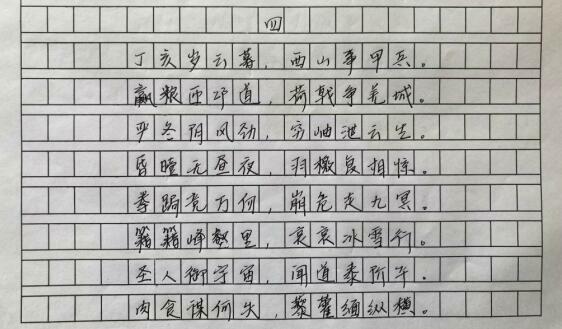 四
丁亥岁云暮，西山事甲兵。
赢粮匝邛道，荷戟争羌城。
严冬阴风劲，穷岫泄云生。
昏曀无昼夜，羽檄复相惊。
拳跼竞万仞，崩危走九冥。
籍籍峰壑里，哀哀冰雪行。
圣人御宇宙，闻道泰阶平。
肉食谋何失，藜藿缅纵横。